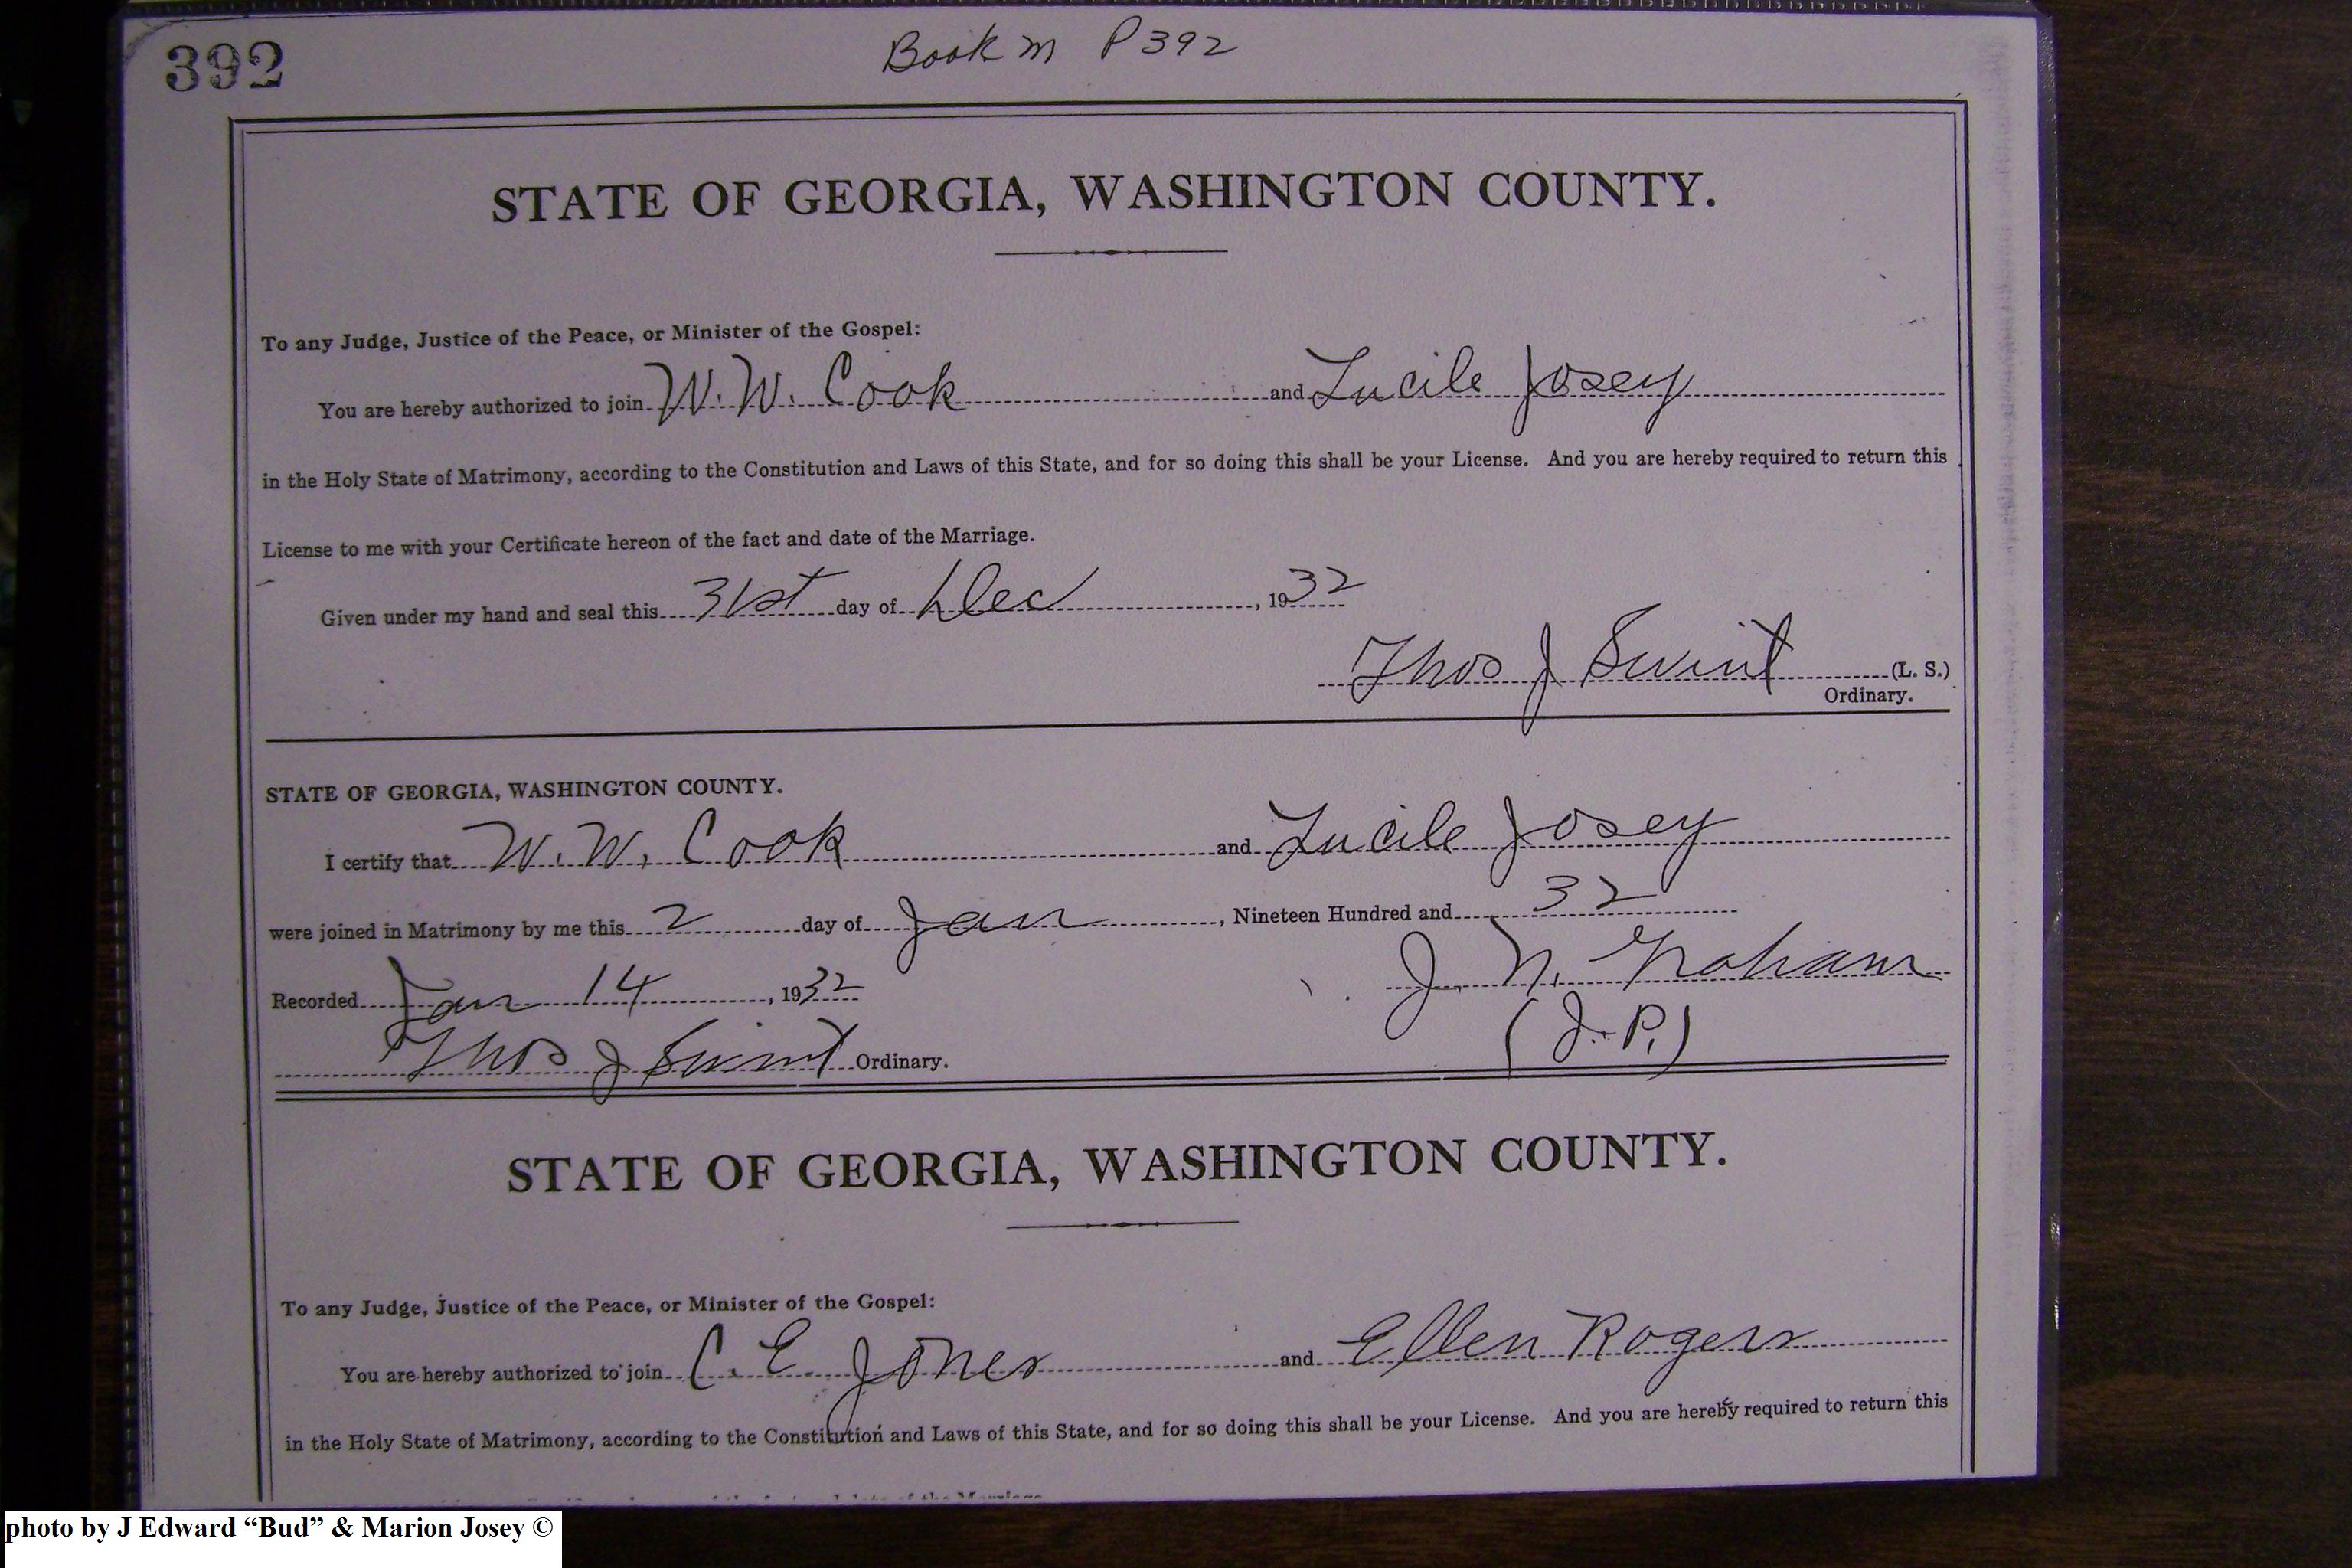 392
Book M P 392
STATE OF GEORGIA, WASHINGTON COUNTY.
To any Judge, Justice of the Peace, or Minister of the Gospel:
You are hereby authorized to join W. W. Cook and Lucile Josey
in the Holy State of Matrimony, according to the Constitution and Laws of this State, and for so doing this shall be your License. And you are hereby required to return this
License to me with your Certificate hereon of the fact and date of the Marriage.
Given under my hand and seal this 31st day of Dec, 1932
Thos J Swint (L. S.)
Ordinary.
STATE OF GEORGIA, WASHINGTON COUNTY.
I certify that W. W. Cook and Lucile Josey
were joined in Matrimony by me this 2 day of Jan, Nineteen Hundred and 32
J. N. Graham
Recorded Jan 14, 1932
(J. P.)
Thos J Swint Ordinary.
STATE OF GEORGIA, WASHINGTON COUNTY.
To any Judge, Justice of the Peace, or Minister of the Gospel:
You are hereby authorized to join C. E. Jones and Ellen Rogers
in the Holy State of Matrimony, according to the Constitution and Laws of this State, and for so doing this shall be your License. And you are hereby required to return this
photo by J Edward “Bud” & Marion Josey ©